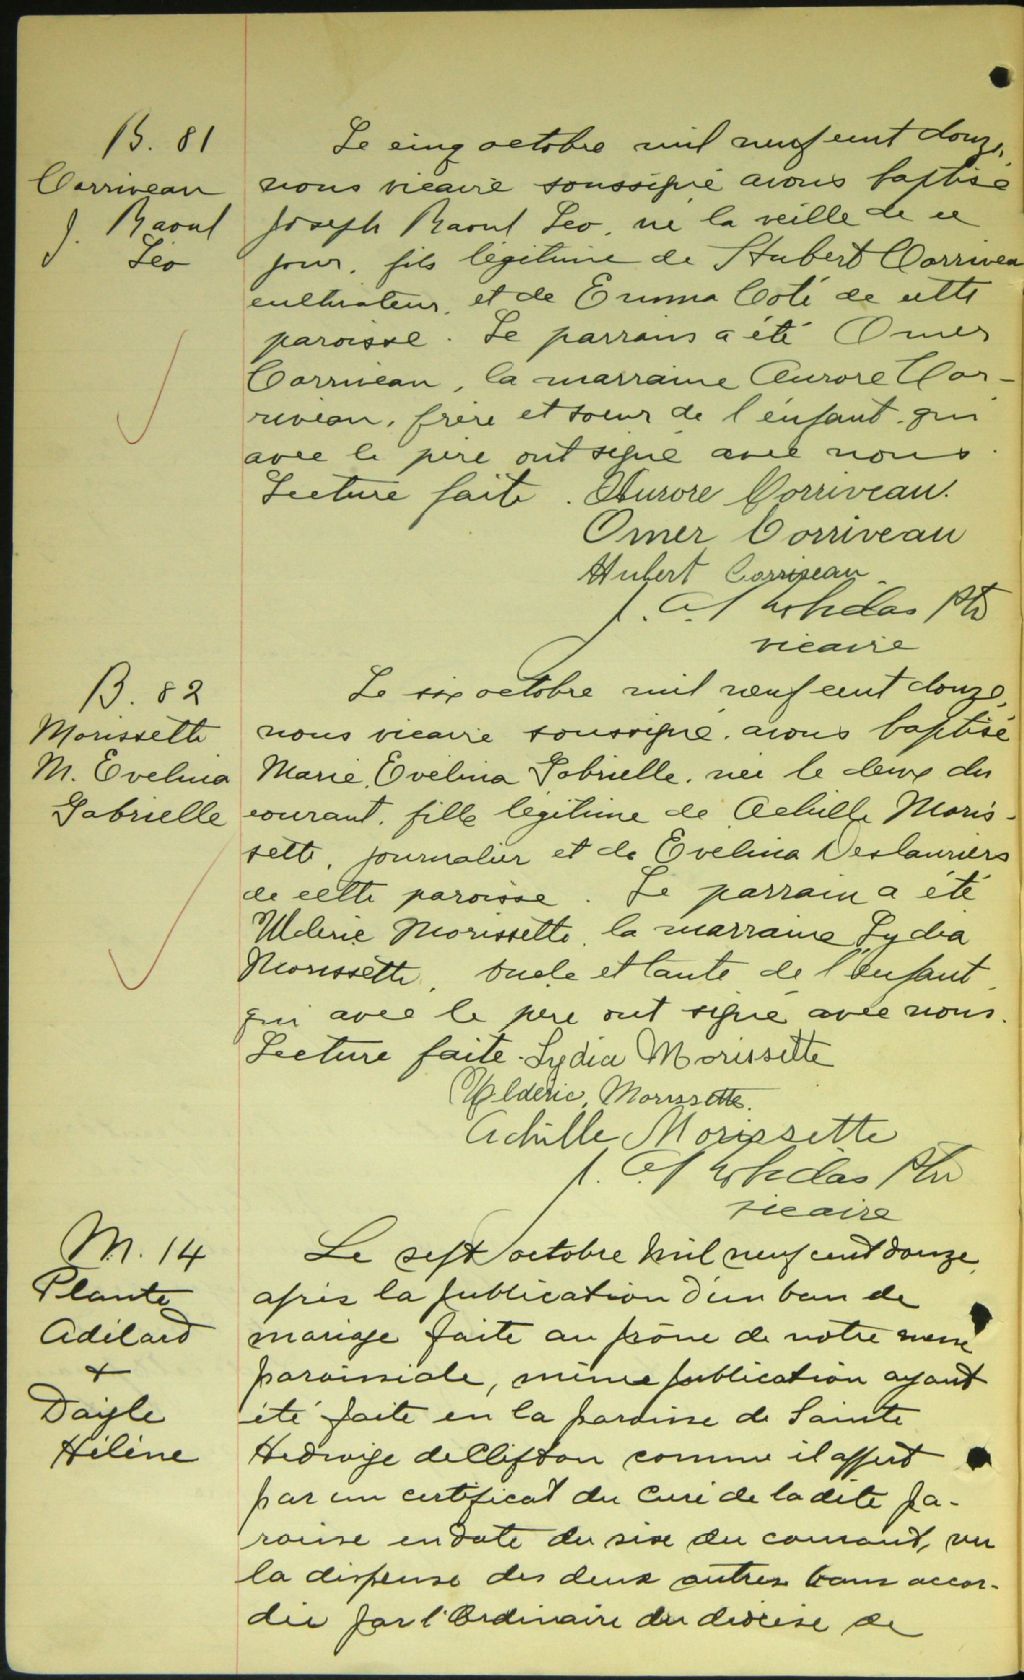 B. 81
Corriveau
J. Raoul
Léo
Le cinq octobre mil neuf cent douze,
nous vicaire soussigné avons baptisé
Joseph Raoul Leo, né la veille de ce
jour, fils légitime de Hubert Corriveau
cultivateur, et de Emma Coté de cette
paroisse. Le parrain a été Omer
Corriveau, la marraine Aurore Cor-
riveau, frère et soeur de l'enfant, qui
avec le père ont signé avec nous.
Lecture faite. Aurore Corriveau.
Omer Corriveau
Hubert Corriveau
J. A. Ptr
vicaire
B. 82
Morissette
M. Evelina
Gabrielle
Le six octobre mil neuf cent douze,
nous vicaire soussigné, avons baptisé
Marie, Evelina Gabrielle, née le deux du
courant, fille légitime de Achille Moris-
sette, journalier et de Evelina Deslauriers
de cette paroisse. Le parrain a été
Ulderic Morissette, la marraine Lydia
Morissette, oncle et tante de l'enfant,
qui avec le père ont signé avec nous.
Lecture faite. Lydia Morissette
Ulderic, Morissette.
Achille Morissette
J. A. Ptr
vicaire
M. 14
Plante
Adélard
+
Daigle
Hélène
Le sept octobre mil neuf cent douze,
après la publication d'un ban de
mariage faite au prône de notre messe
paroissiale, même publication ayant
été faite en la paroisse de Sainte
Hedwige de Clifton comme il appert
par un certificat du Curé de la dite pa-
roisse en date du six du courant, vu
la dispense des deux autres bans accor-
dée par l'Ordinaire du diocèse de